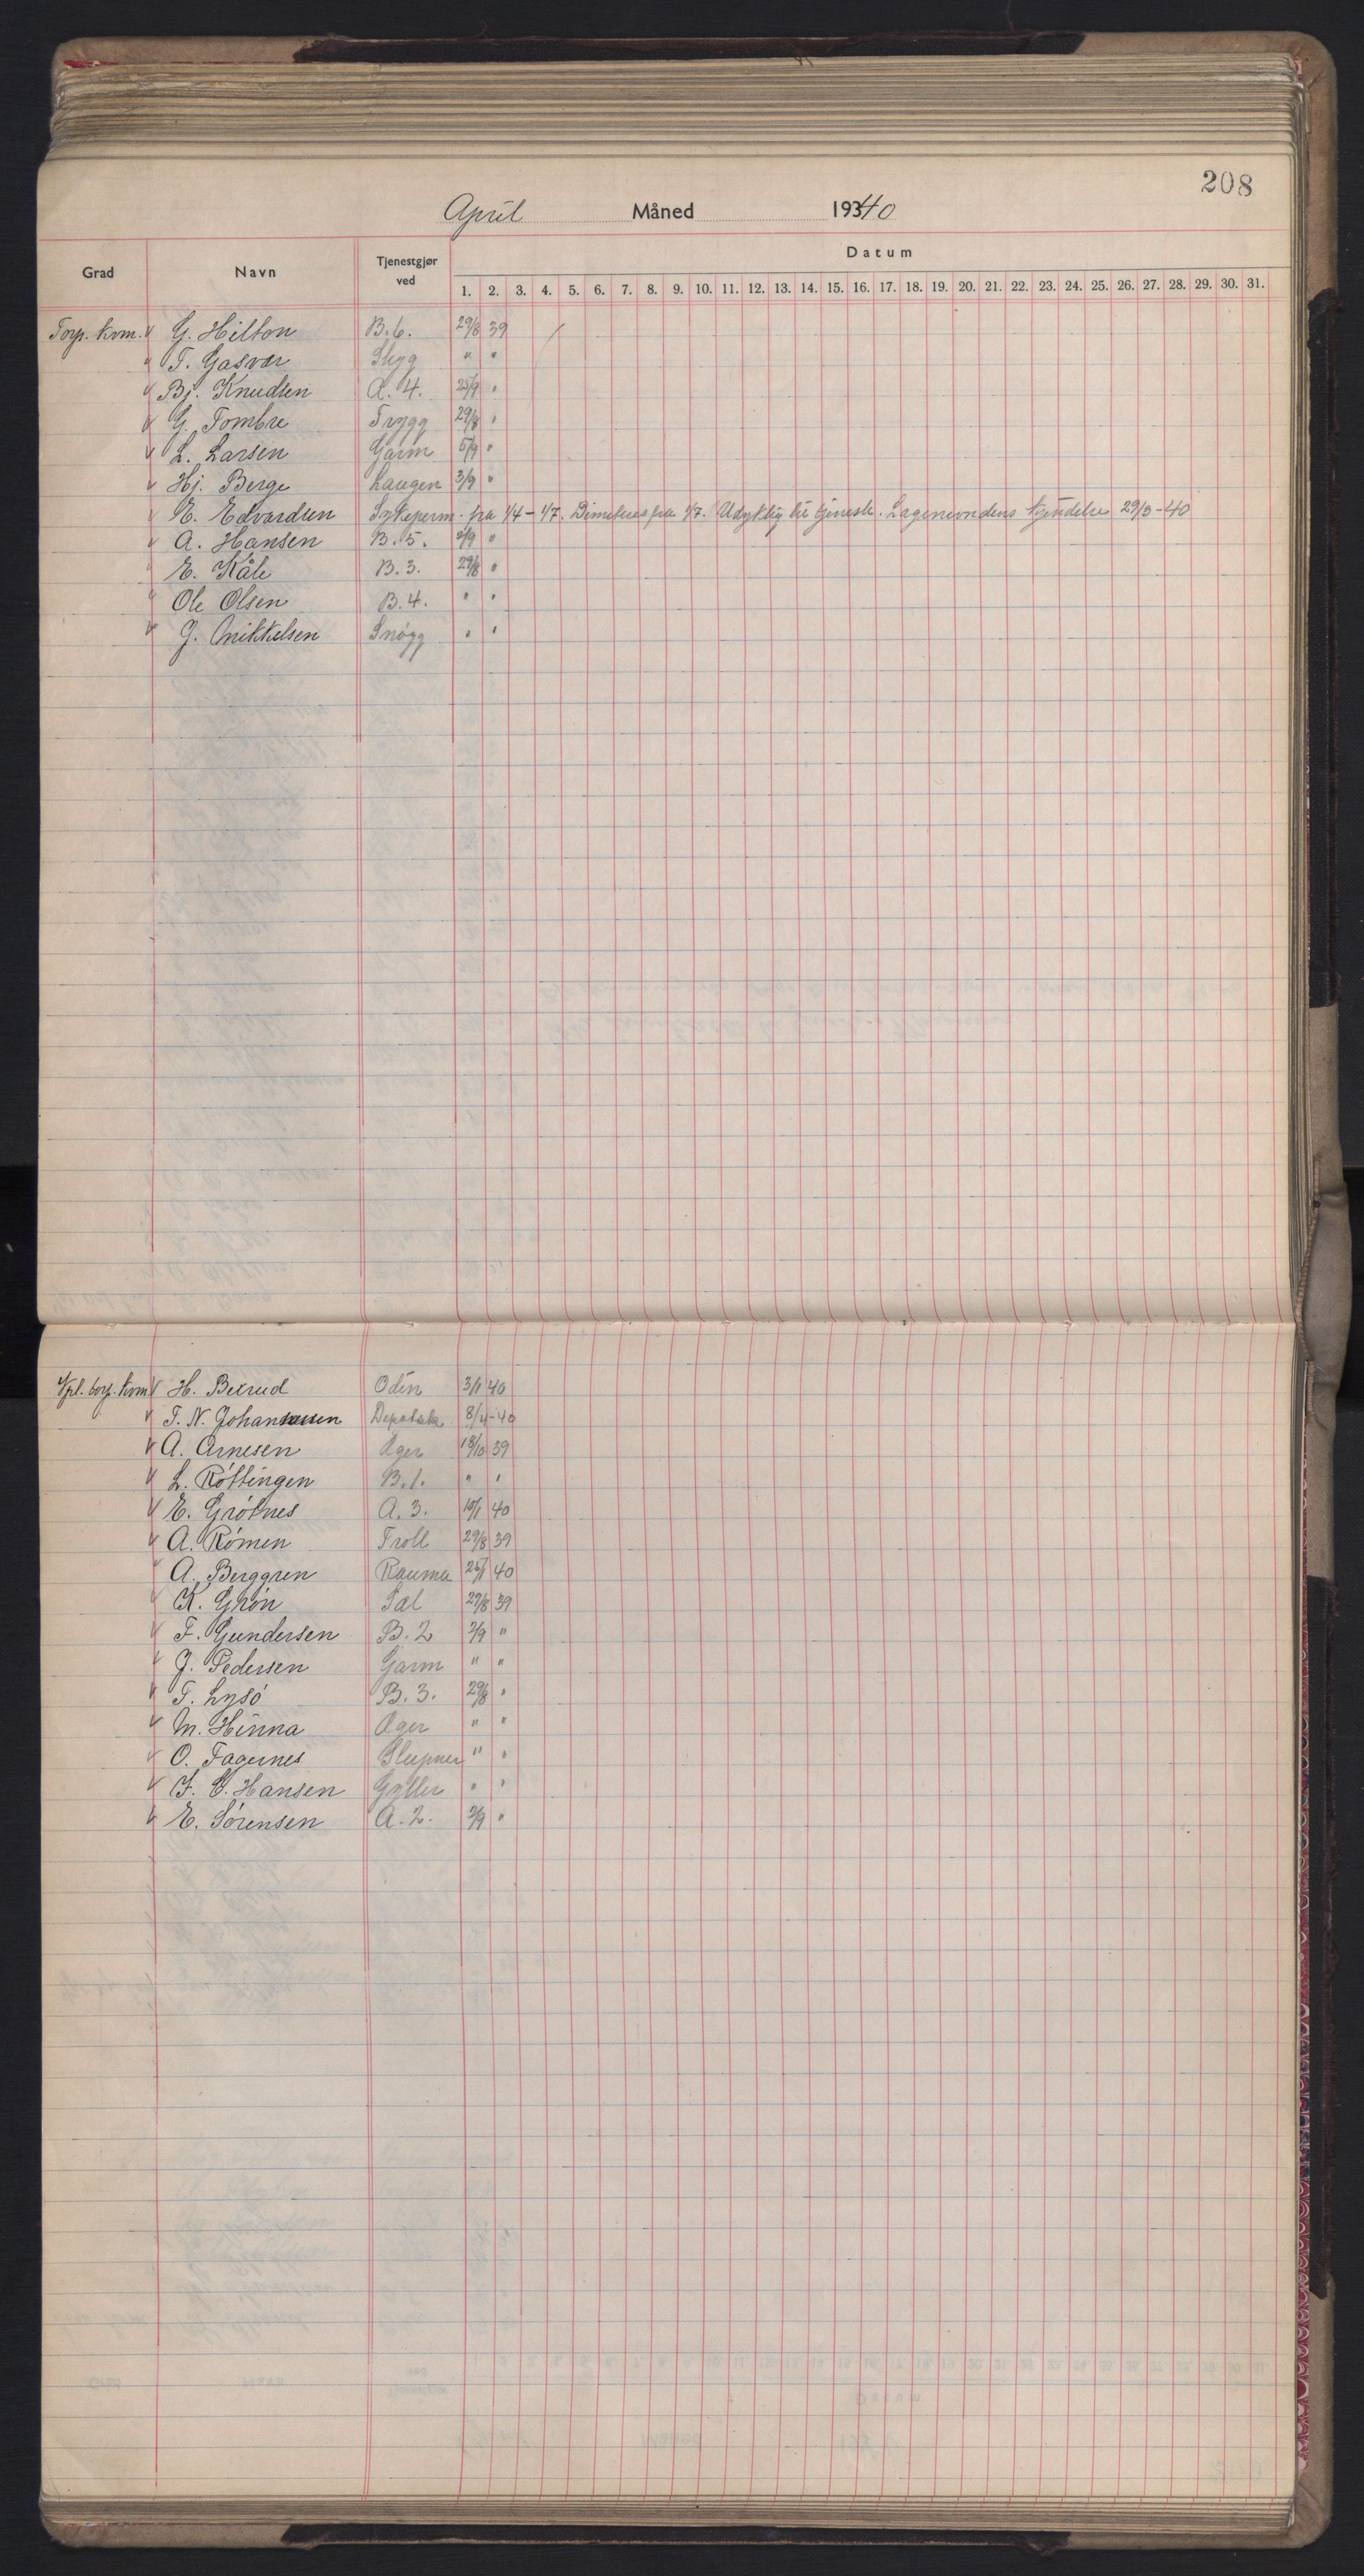 208
April Måned 19340
Grad Navn Tjenestgjør ved Datum
1. 2. 3. 4. 5. 6. 7. 8. 9. 10. 11. 12. 13. 14. 15. 16. 17. 18. 19. 20. 21. 22. 23. 24. 25. 26. 27. 28. 29. 30. 31.
Torp. kvm. G. Hilton B. 6. 29/8 39
T. Gasvær Skyg " "
Bj. Knudsen A. 4. 25/9 "
G. Tombre Trygg 29/8 "
L. Larsen Garm 5/9 "
Hj. Berge Laugen 3/9 "
E. Edvardsen Sykeperm. fra 1/4 - 1/7. fra 1/7. Udyktig til tjeneste. kjendelse 29/3-40
A. Hansen B. 5. 2/9 "
E. Kåle B. 3. 29/8 "
Ole Olsen B. 4. " "
J. Mikkelsen Snøgg " "
Vpl. torp. kvm. H. Bexrud Odin 3/1 40
T. N. Johannessen 8/4-40
A. Arnesen Æger 18/10 39
L. Røttingen B. 1. " "
E. Grøtnes A. 3. 10/1 40
A. Rømen Troll 29/8 39
A. Berggren Rauma 25/1 40
K. Grøn Sæl 29/8 39
F. Gundersen B. 2 2/9 "
J. Pedersen Garm " "
T. Lysø B. 3. 29/8 "
M. Hinna Æger " "
O. Fagernes Sleipner " "
F. G. Hansen Gyller " "
E. Sørensen A. 2. 2/9 "